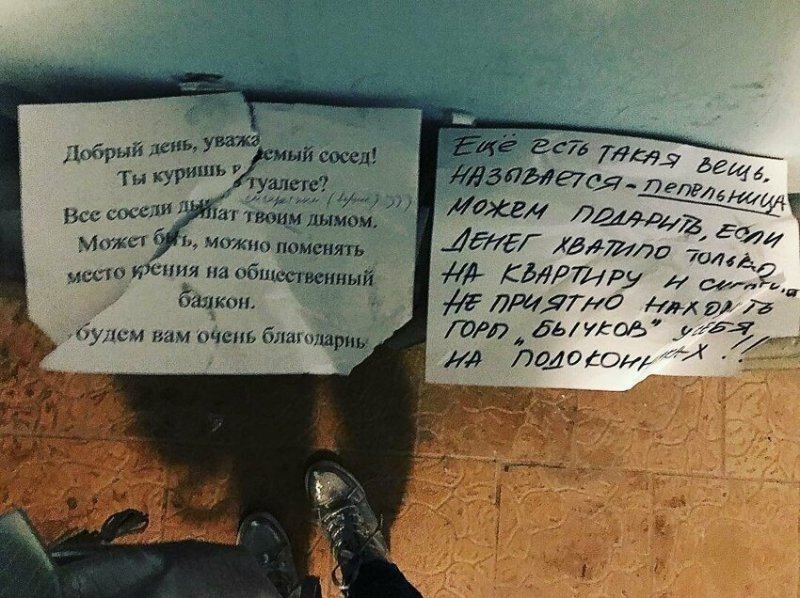 Добрый день, уважаемый сосед!
Ты куришь в туалете?
Все соседи дышат твоим дымом.
Может быть, можно поменять
место курения на общественный
балкон.
будем вам очень благодарны
Ещё есть такая вещь.
называется - пепельница
можем подарить, если
денег хватило только
на квартиру и
не приятно находить
горы "бычков" у себя
на подоконниках!!